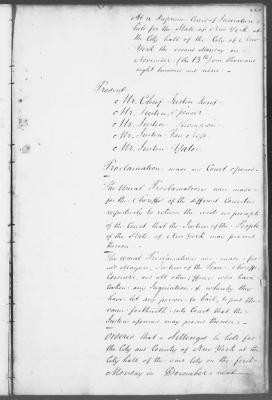 At a Supreme Court of Judicature
held for the State of New York at
the City hall of the City of New
York the second Monday in
November (the 13th) one thousand
eight hundred and nine.
Present
Mr. Chief Justice Kent
Mr. Justice Spencer
Mr. Justice Thompson
Mr. Justice Van Ness
Mr. Justice Yates
Proclamation was made Court opened
The Usual Proclamations were made
for the Sheriffs of the different Counties
respectively to return the writs and precepts
of the Court that the Justices of the People
of the State of New York may proceed
thereon
The usual Proclamation was made for
all Mayors, Justices of the Peace
Coroners and all other Officers who have
taken any Inquisitions & whereby they
have let any person to bail, to put the
same forthwith into Court that the
Justices aforesaid may proceed thereon
Ordered that a Sittings be held for
the City and County of New York at the
City hall of the said City on the first
Monday in December next